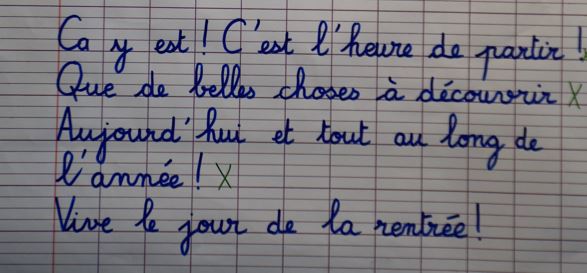 Ca y est ! C'est l'heure de partir !
Que de belles choses à découvrir X
Aujourd'hui et tout au long de
l'année ! X
Vive le jour de la rentrée !